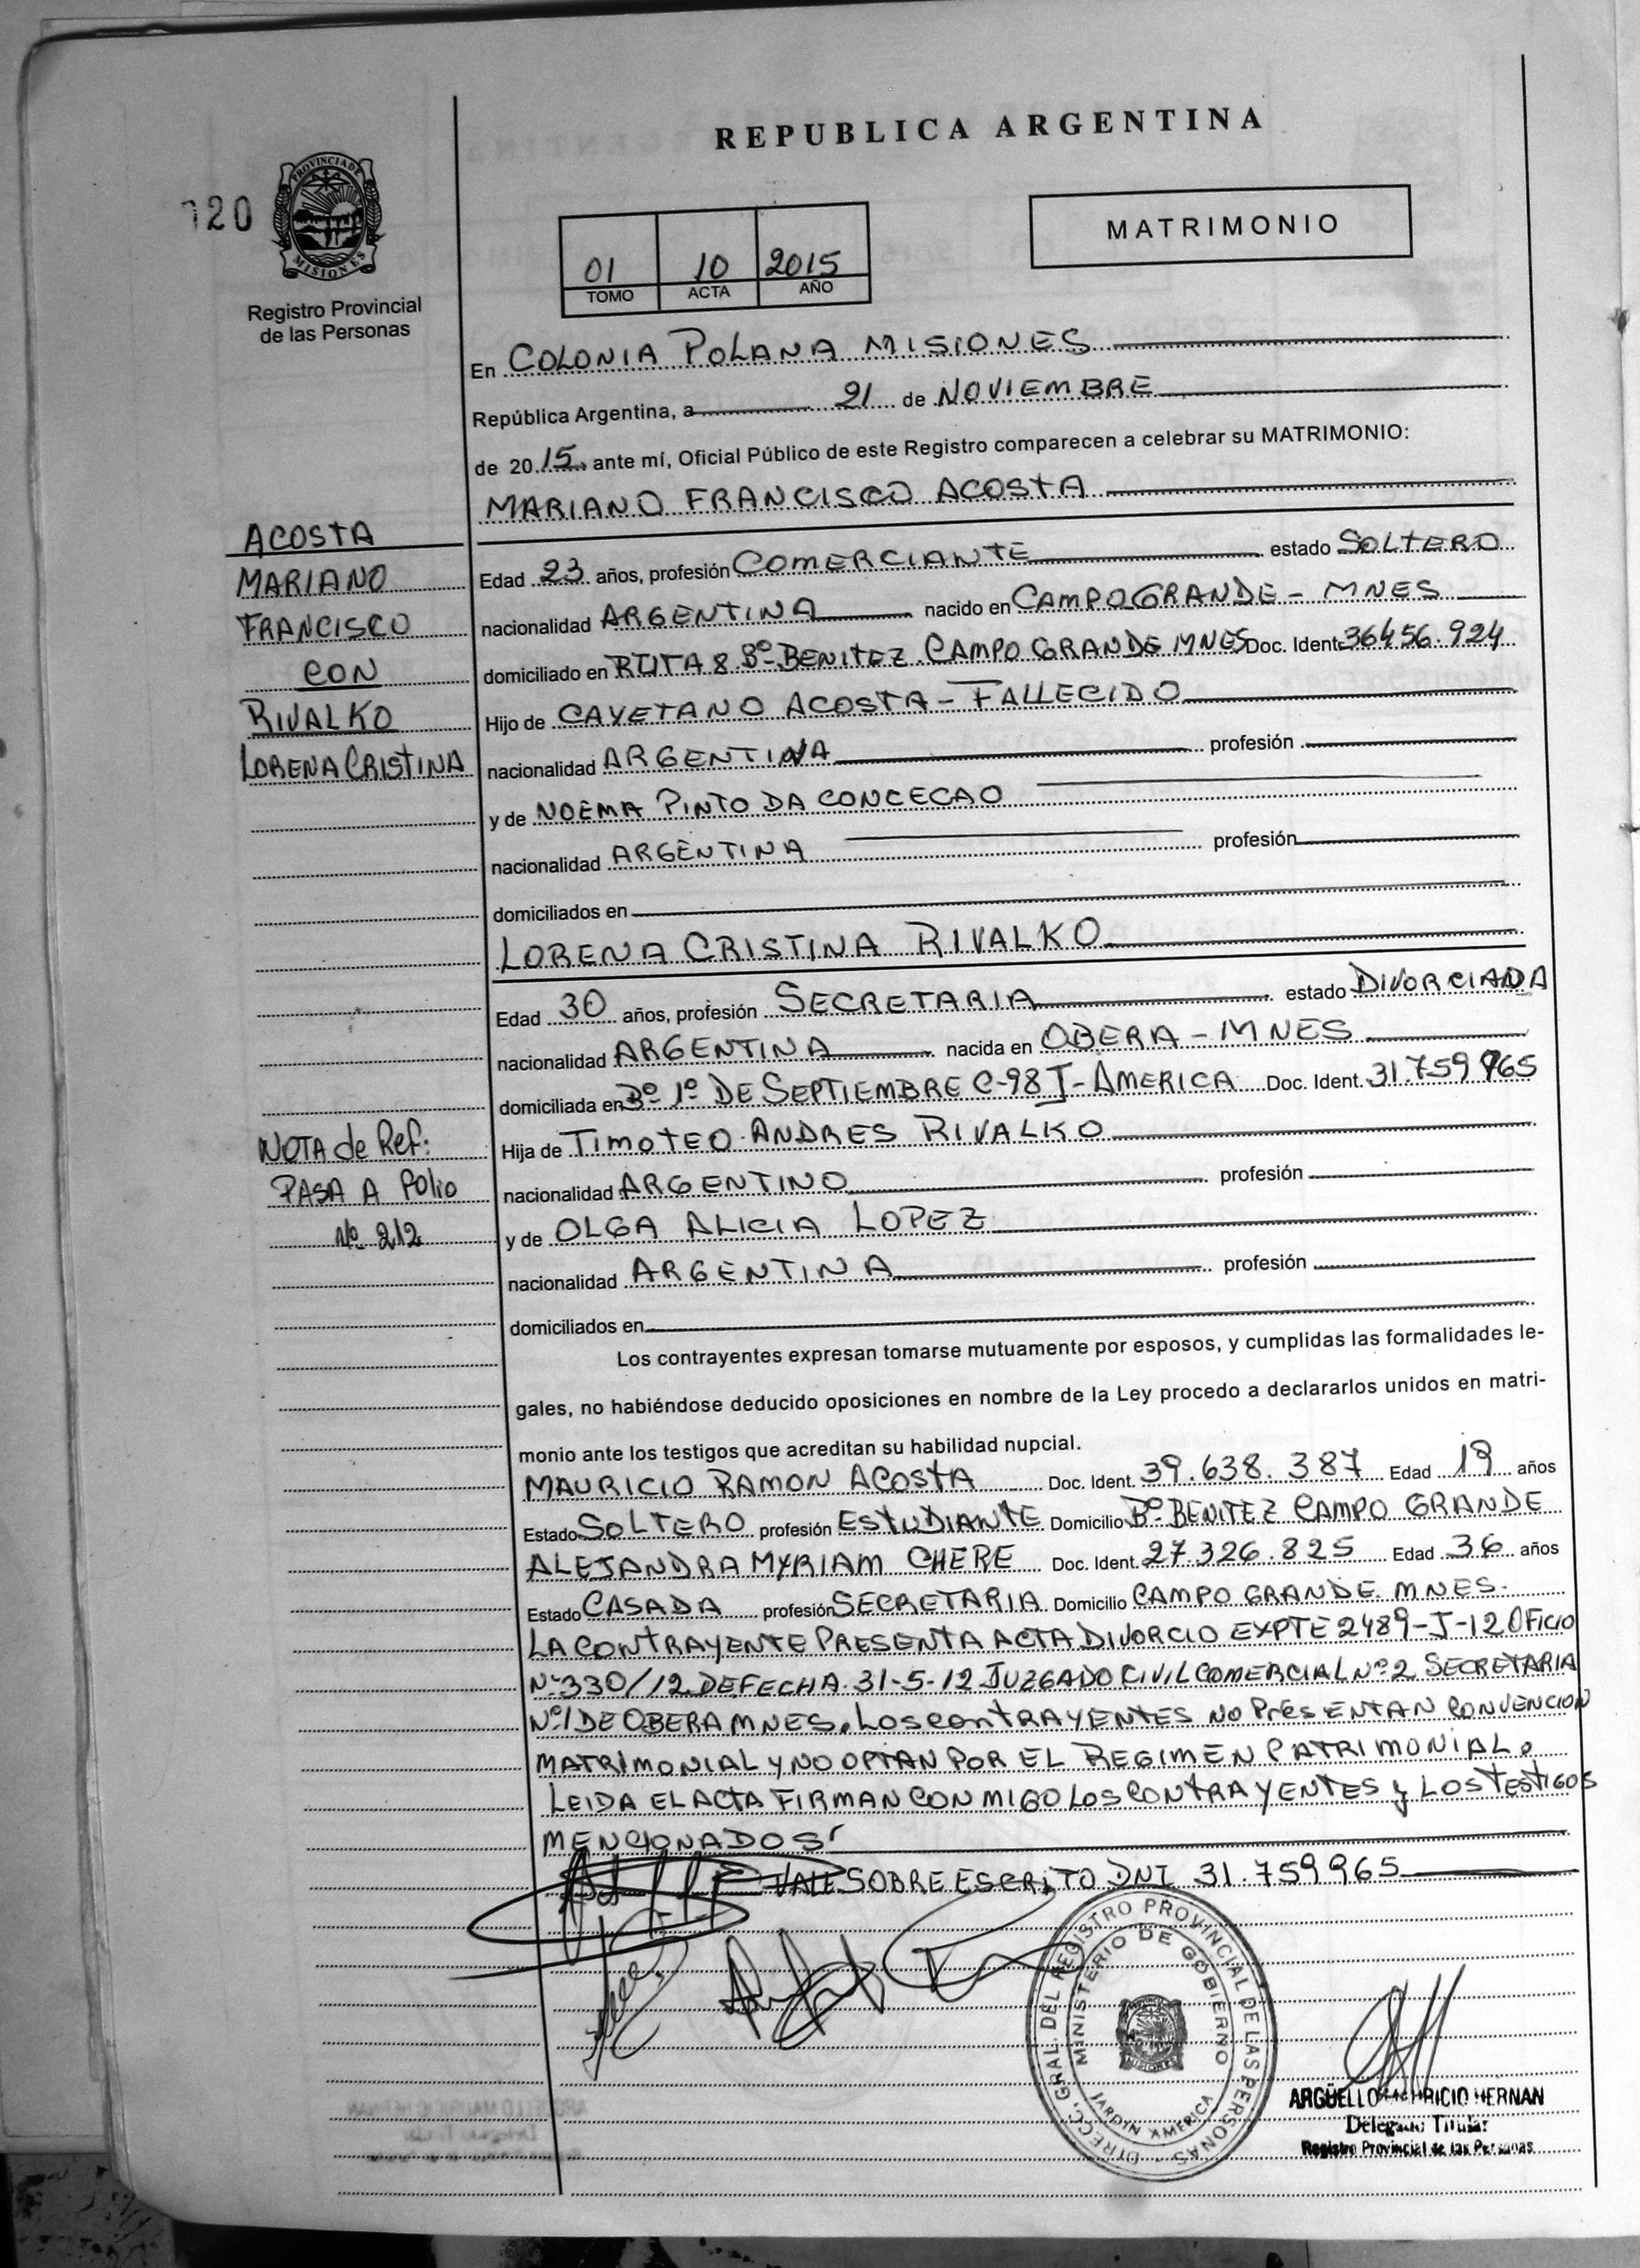 REPUBLICA ARGENTINA
120
PROVINCIA DE
MISIONES
Registro Provincial
de las Personas
01 10 2015
TOMO ACTA AÑO
MATRIMONIO
En COLONIA POLANA MISIONES
República Argentina, a 21 de NOVIEMBRE
de 2015, ante mí, Oficial Público de este Registro comparecen a celebrar su MATRIMONIO:
MARIANO FRANCISCO ACOSTA
ACOSTA
MARIANO
FRANCISCO
CON
RIVALKO
LORENA CRISTINA
Edad 23 años, profesión COMERCIANTE estado SOLTERO
nacionalidad ARGENTINA nacido en CAMPO GRANDE - MNES
domiciliado en RUTA 8 Bº BENITEZ CAMPO GRANDE MNES Doc. Ident. 36456.924
Hijo de CAYETANO ACOSTA - FALLECIDO
nacionalidad ARGENTINA profesión
y de NOEMA PINTO DA CONCECAO
nacionalidad ARGENTINA profesión
domiciliados en
LORENA CRISTINA RIVALKO
Edad 30 años, profesión SECRETARIA estado DIVORCIADA
nacionalidad ARGENTINA nacida en OBERA - MNES
domiciliada en Bº 1º DE SEPTIEMBRE C-98 J-AMERICA Doc. Ident. 31.759 965
Hija de TIMOTEO ANDRES RIVALKO
nacionalidad ARGENTINO profesión
y de OLGA ALICIA LOPEZ
nacionalidad ARGENTINA profesión
domiciliados en
NOTA de Ref:
PASA A Folio
Nº 212
Los contrayentes expresan tomarse mutuamente por esposos, y cumplidas las formalidades le-
gales, no habiéndose deducido oposiciones en nombre de la Ley procedo a declararlos unidos en matri-
monio ante los testigos que acreditan su habilidad nupcial.
MAURICIO RAMON ACOSTA Doc. Ident. 39.638.387 Edad 19 años
Estado SOLTERO profesión ESTUDIANTE Domicilio Bº BENITEZ CAMPO GRANDE
ALEJANDRA MYRIAM CHERE Doc. Ident. 27.326.825 Edad 36 años
Estado CASADA profesión SECRETARIA Domicilio CAMPO GRANDE MNES.
LA CONTRAYENTE PRESENTA ACTA DIVORCIO EXPTE 2489-J-12 OFICIO
Nº 330/12 DE FECHA 31-5-12 JUZGADO CIVIL COMERCIAL Nº 2 SECRETARIA
Nº 1 DE OBERA MNES. LOS CONTRAYENTES NO PRESENTAN CONVENCION
MATRIMONIAL Y NO OPTAN POR EL REGIMEN PATRIMONIAL.
LEIDA EL ACTA FIRMAN CONMIGO LOS CONTRAYENTES y LOS TESTIGOS
MENCIONADOS
VALE SOBRE ESCRITO DNI 31.759965
DIRECC. GRAL. DEL REGISTRO PROVINCIAL DE LAS PERSONAS
MINISTERIO DE GOBIERNO
JARDIN AMERICA
MISIONES
ARGÜELLO MAURICIO HERNAN
Delegado Titular
Registro Provincial de las Personas